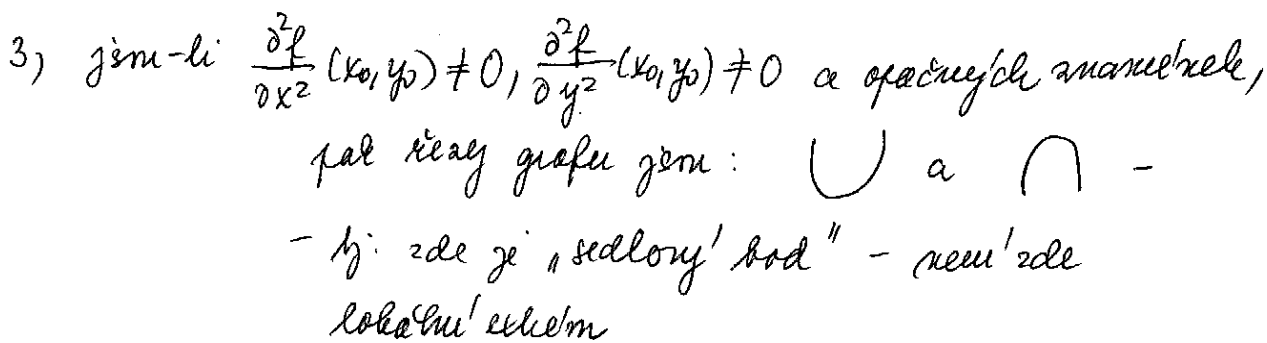 3) jsou-li ∂²f/∂x² (x₀, y₀) ≠ 0, ∂²f/∂y² (x₀, y₀) ≠ 0 a opačných znamének,
pak řezy grafu jsou: ∪ a ∩ –
– tj. zde je „sedlový bod" – není zde
lokální extrém